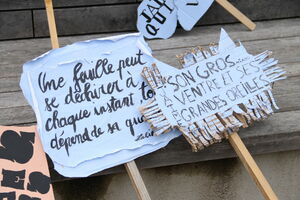 Une feuille peut
se déchirer à
chaque instant to
dépend de sa qu
SON GROS
VENTRE ET SES
GRANDES OREILLES
J'AI
QU